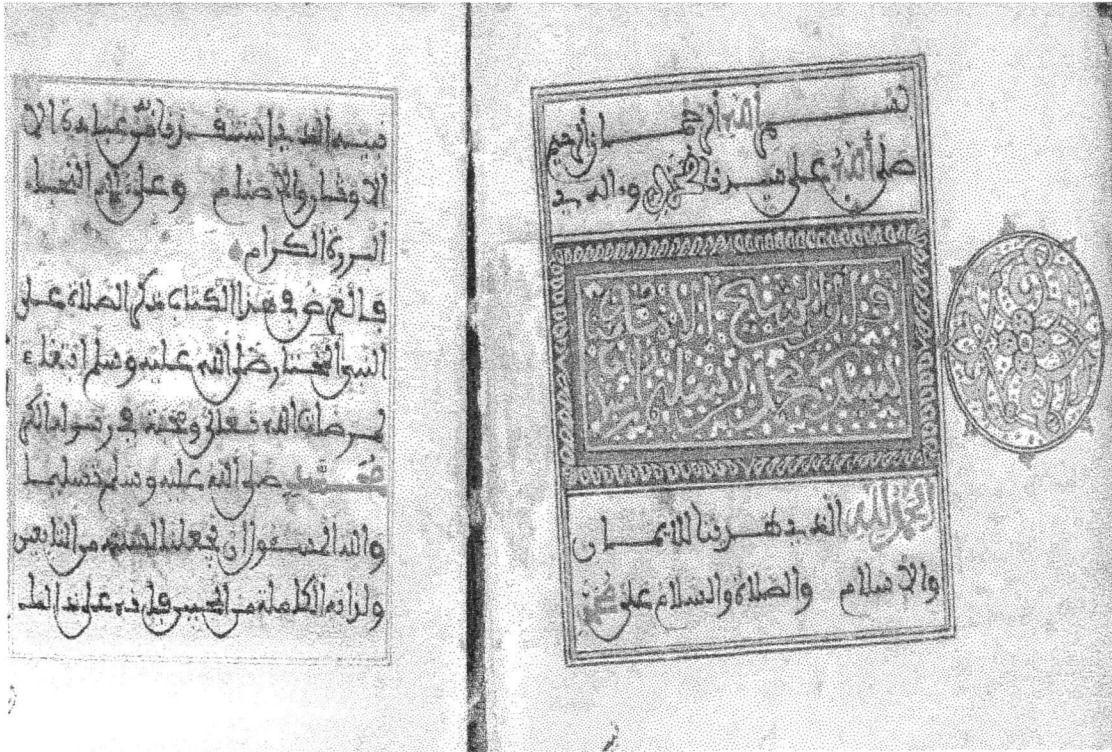 بسم الله الرحمان الرحيم
صلى الله على سيدنا محمد وءاله
قال الشيخ الامام
الحمد لله الذي هدينا للايمان
والاسلام والصلاة والسلام على محمد
نبيه الذي استنقذنا عبادة الا
الاوثان والاصنام وعلى ءاله النجباء
البررة الكرام
فالغرض في هذا الكتاب ذكر الصلاة على
النبي المختار صلى الله عليه وسلم ابتغاء
لمرضات الله تعالى ومحبة في رسوله الكريم
محمد صلى الله عليه وسلم تسليما
والله المسئول ان يجعلنا لسنته من التابعين
ولذاته الكاملة من المحبين فانه على ذلك